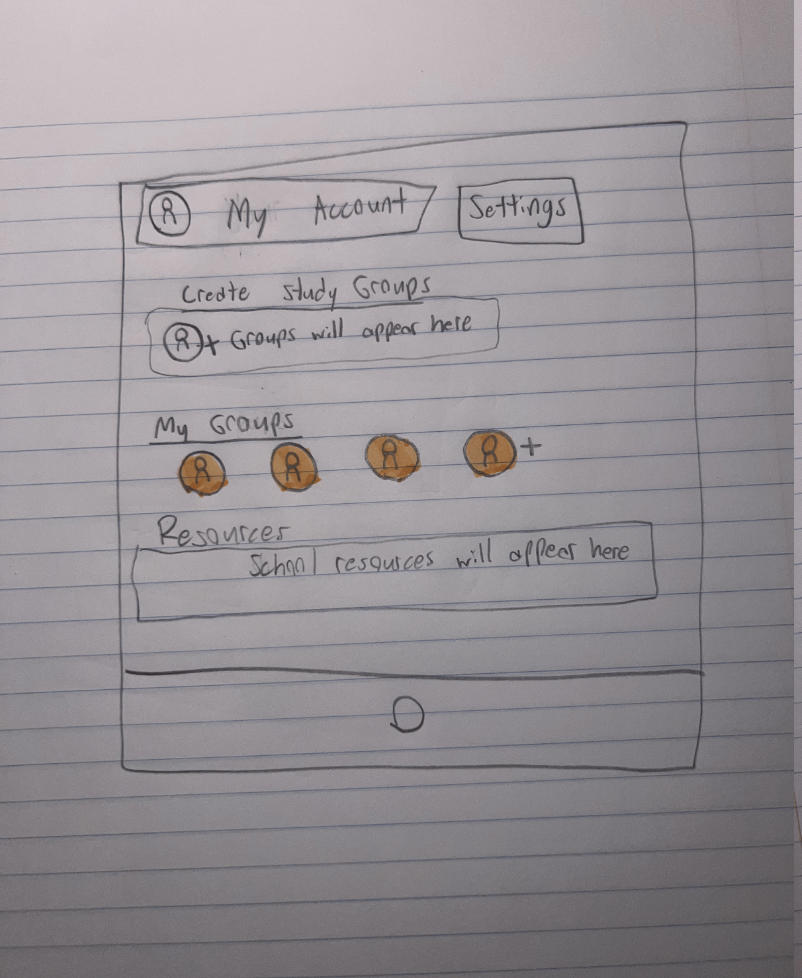 My Account
Settings
Create Study Groups
+ Groups will appear here
My Groups
+
Resources
School resources will appear here